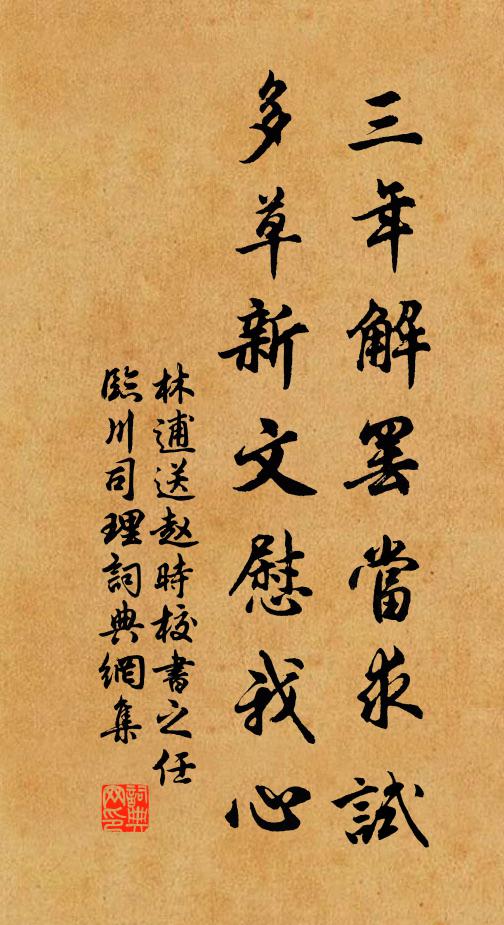 三年解罢當求試
多草新文慰我心
林逋送赵時校書之任
臨川司理詞典網集
詞典网印